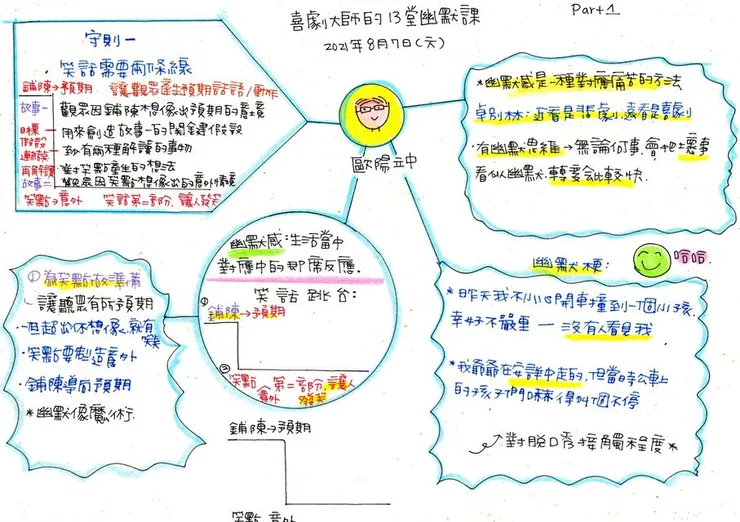 喜劇大師的13堂幽默課
Part 1
2021年8月7日(六)
守則一
笑話需要兩條線
鋪陳→預期 讓觀眾產生預期說話/動作
故事一 觀眾因鋪陳想像出預期的意境
目標
假設 用來創造故事一的關鍵假設
連接 致有兩種解讀的事物
再解讀 對笑點產生的想法
故事二 觀眾因笑點想像出的意外情境
笑點→意外 笑話第二部份,讓人發笑
歐陽立中
*幽默感是一種對應痛苦的方法
卓別林:近看是悲劇,遠看是喜劇
·有幽默思維→無論何事,會把壞事
看似幽默,轉變會比較快.
幽默感:生活當中
對應中的即席反應.
笑話平台:
① 鋪陳→預期
② 笑點 第二部份,讓人
意外 發笑
① 為笑點做準備
·讓聽眾有所預期
·笑點要製造意外
·鋪陳導向預期
*幽默像魔術.
幽默梗: 哈哈.
*昨天我不小心開車撞到一個小孩,
幸好不嚴重 — 沒有人看見我.
*我爺爺在安詳中走的,但當時公車上
的孩子們嚇得叫個不停
對脫口秀接觸程度*
鋪陳→預期
笑點 意外